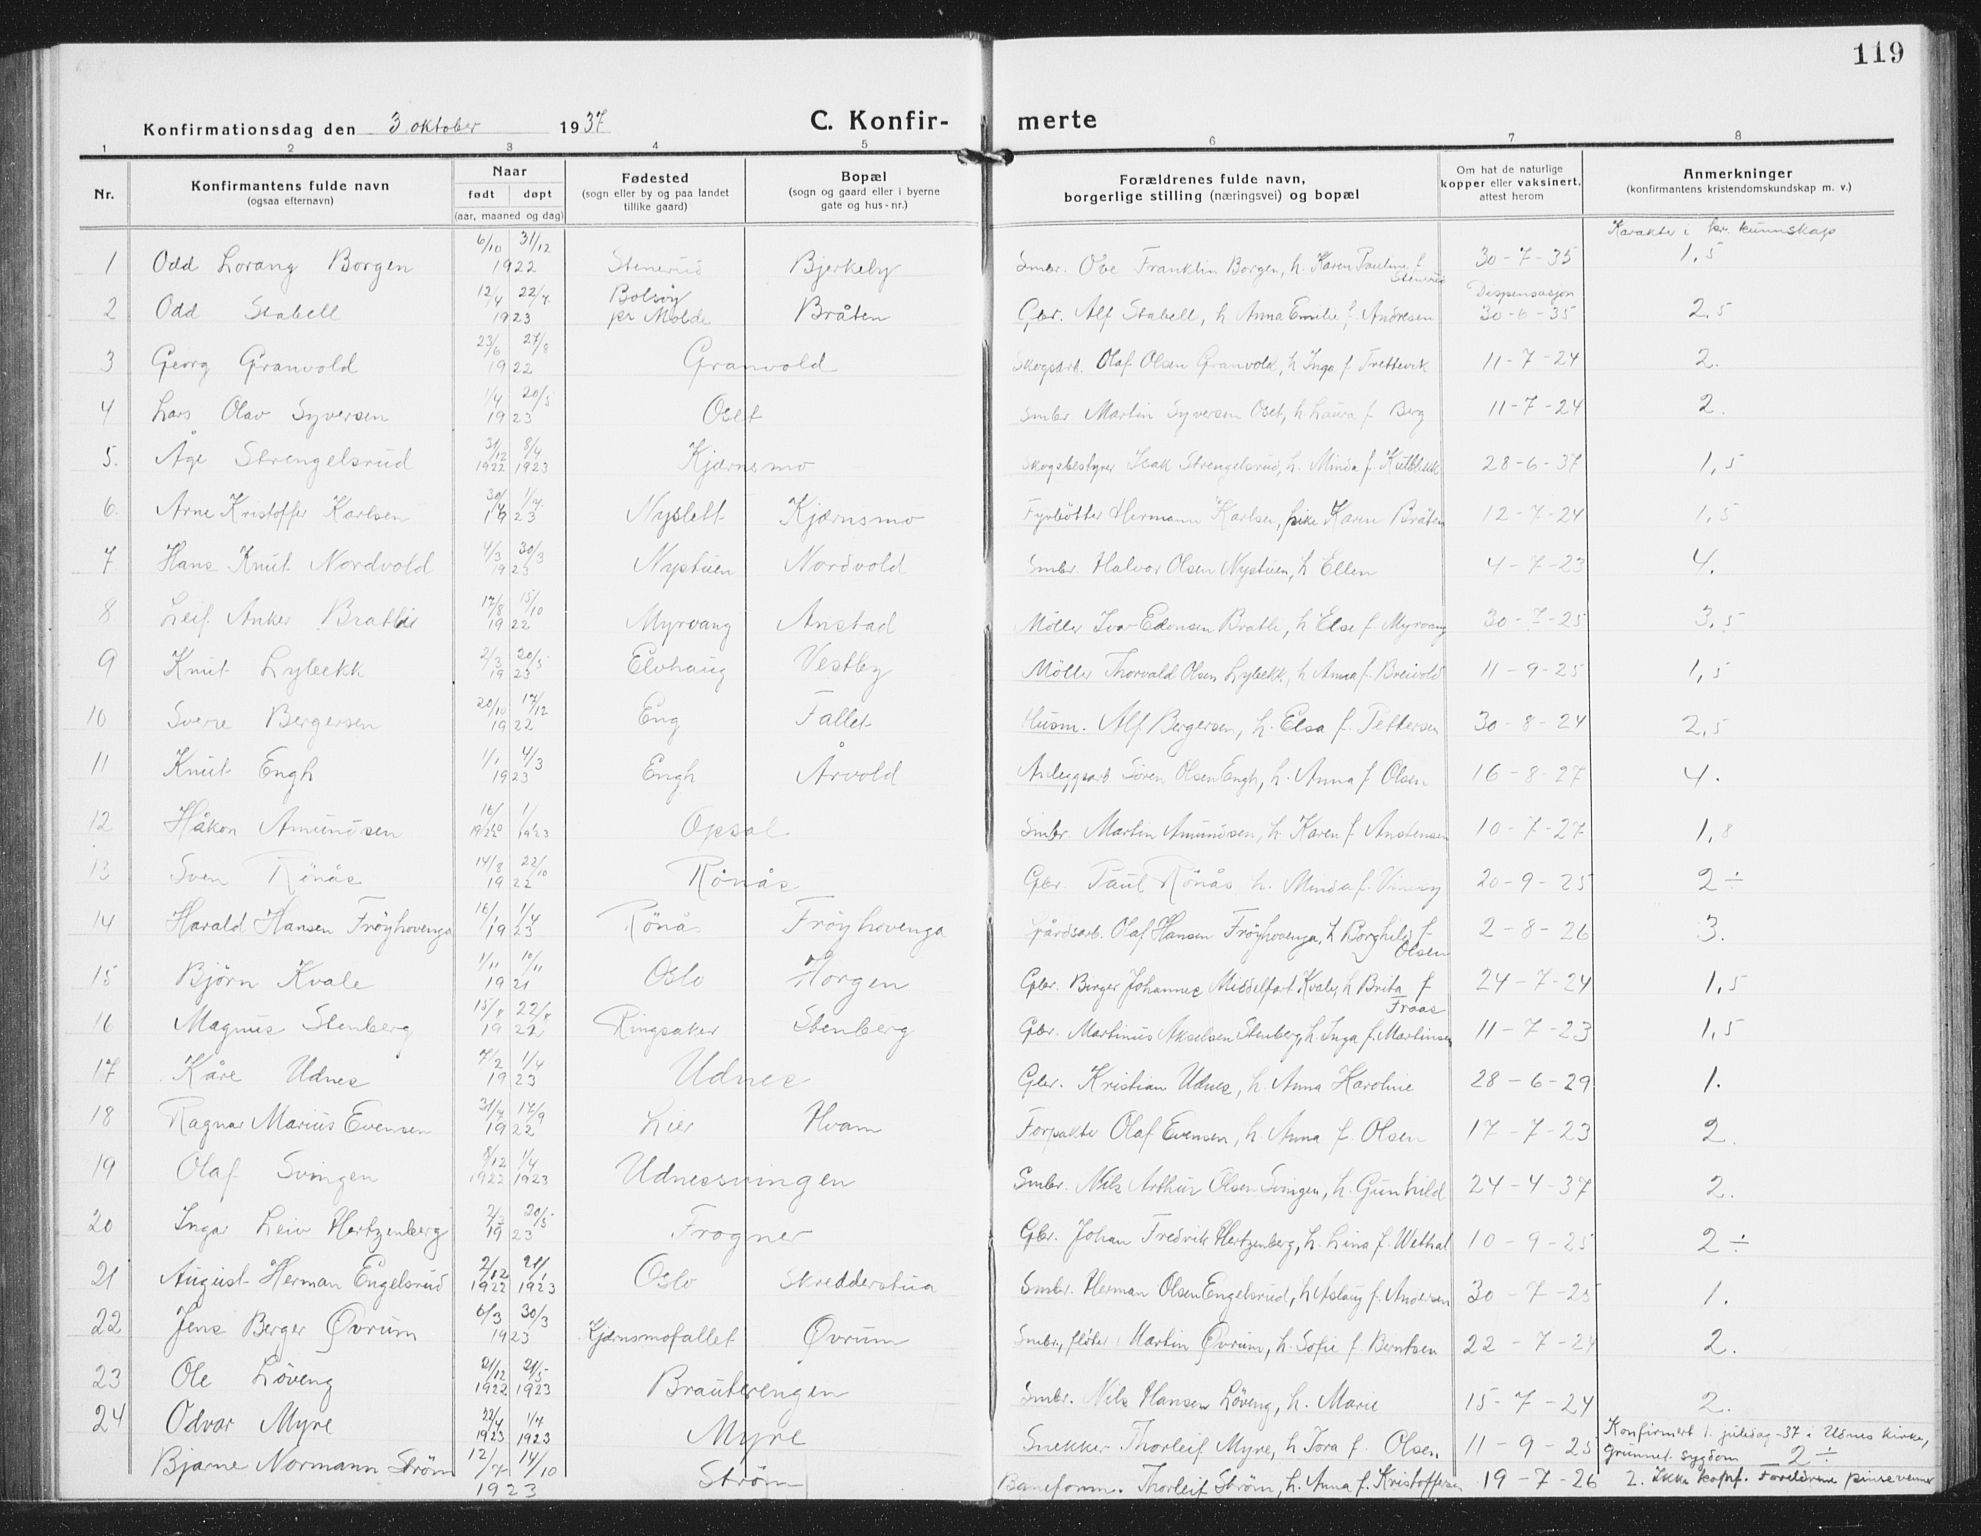 119
Konfirmationsdag den 3 oktober 1937 C. Konfir- merte
1 2 3 4 5 6 7 8
Nr. Konfirmantens fulde navn (ogsaa efternavn) Naar født døpt (aar, maaned og dag) Fødested (sogn eller by og paa landet tillike gaard) Bopæl (sogn og gaard eller i byerne gate og hus-nr.) Forældrenes fulde navn, borgerlige stilling (næringsvei) og bopæl Om hat de naturlige kopper eller vaksinert, attest herom Anmerkninger (konfirmantens kristendomskundskap m. v.)
Karakter i kr. kunnskap
1 Odd Lorang Borgen 6/10 31/12 1922 Stenerud Bjerkeby Smbr. Ove Franklin Borgen, h. Karen Pauline f. Stenerud 30-7-35 1,5
2 Odd Stabell 12/4 22/7 1923 Bolsøy pr Molde Bråten Gbr. Alf Stabell, h Anna Emilie f. Andresen Dispensasjon 30-6-35 2,5
3 Georg Granvold 23/6 27/8 1922 Granvold Skogsarb. Olaf Olsen Granvold, h Inga f. Trettevik 11-7-24 2.
4 Lars Olav Syversen 1/4 20/5 1923 Oset Smbr Martin Syversen Oset, h. Laura f. Berg 11-7-24 2.
5. Åge Strengelsrud 31/12 1922 8/4 1923 Kjærnsmo Skogsbestyrer Isak Strengelsrud, h. Minda f. 28-6-37 1,5
6. Arne Kristoffer Karlsen 1923 Nyslett Kjærnsmo Fyrbøtter Hermann Karlsen, pike Karen Bråten 12-7-24 1,5
7 Hans Knut Nordvold 4/3 30/3 1923 Nystuen Nordvold Smbr. Halvor Olsen Nystuen, h Ellen 4-7-23 4.
8 Leif Anker Bratlie 17/8 15/10 1922 Myrvang Anstad Møller Ivar Edvnsen Bratli, h Else f. Myrvang 30-7-25 3,5
9 Knut Lybekk 2/3 20/5 1923 Elvhaug Vestby Møller Thorvald Olsen Lybekk, h Anna f. Breivold 11-9-25 1,5
10 Sverre Bergersen 20/10 17/12 1922 Eng Fallet Husm. Alf Bergersen, h. Elsa f. Pettersen 30-8-24 2,5
11 Knut Engh 1/1 4/3 1923 Engh Årvold Anleggsarb Søren Olsen Engh, h. Anna f Olsen 16-8-27 4.
12 Håkon Amundsen Opsal Smbr. Martin Amundsen, h. Karen f. Anstensen 10-7-27 1,8
13 Sven Rønås 14/8 22/10 1922 Rønås Gbr. Paul Rønås h. Minda f. 20-9-25 2÷
14 Harald Hansen Frøyhovenga 16/1 1/4 1923 Rønås Frøyhovenga Gårdsarb. Olaf Hansen Frøyhovenga, h Borghild f. Olsen 2-8-26 3.
15 Bjørn Kvale 1/11 10/11 1921 Oslo Horgen Gbr. Birger Johannes Middelfart Kvale, h Brita f Fraas 24-7-24 1,5
16 Magnus Stenberg 15/8 22/8 1922 Ringsaker Stenberg Gbr. Martinus Akselsen Stenberg, h. Inga f. Martinsen 11-7-23 1,5
17 Kåre Udnes 7/2 1/4 1923 Udnes Gbr. Kristian Udnes, h. Anna Karoline 28-6-29 1.
18 Ragnar Marius Evensen 31/7 17/9 1922 Lier Hvam Forpakter Olaf Evensen, h. Anna f. Olsen 17-7-23 2.
19 Olaf Svingen 8/12 1922 1/4 1923 Udnessvingen Smbr. Nils Arthur Olsen Svingen, h. Gunhild 24-4-37 2.
20 Ingar Leiv Hertzenberg 2/3 20/5 1923 Frogner Gbr. Johan Fredrik Hertzenberg, h. Lina f. Wethal 10-9-25 2÷
21 August Herman Engelsrud 2/12 1922 21/1 1923 Oslo Skredderstua Smbr. Herman Olsen Engelsrud, h Aslaug f. Andersen 30-7-25 1.
22 Jens Berger Øvrum 6/3 30/3 1923 Kjærnsmofallet Øvrum Smbr., fløter Martin Øvrum, h. Sofie f. Berntsen 22-7-24 2.
23 Ole Løveng 21/12 1922 21/5 1923 Brauterengen Smbr. Nils Hansen Løveng, h. Marie 15-7-24 2.
24 Odvar Myre 22/4 1923 1/7 1923 Myre Snekker Thorleif Myre, h Tora f. Olsen 11-9-25 Konfirmert 1. juledag -37 i Udnes kirke, grunnet sygdom 2÷
Bjarne Normann Strøm 12/7 14/10 1923 Strøm Baneform. Thorleif Strøm, h. Anna f. Kristoffersen 19-7-26 2. Ikke konf. Foreldrene pinsevenner